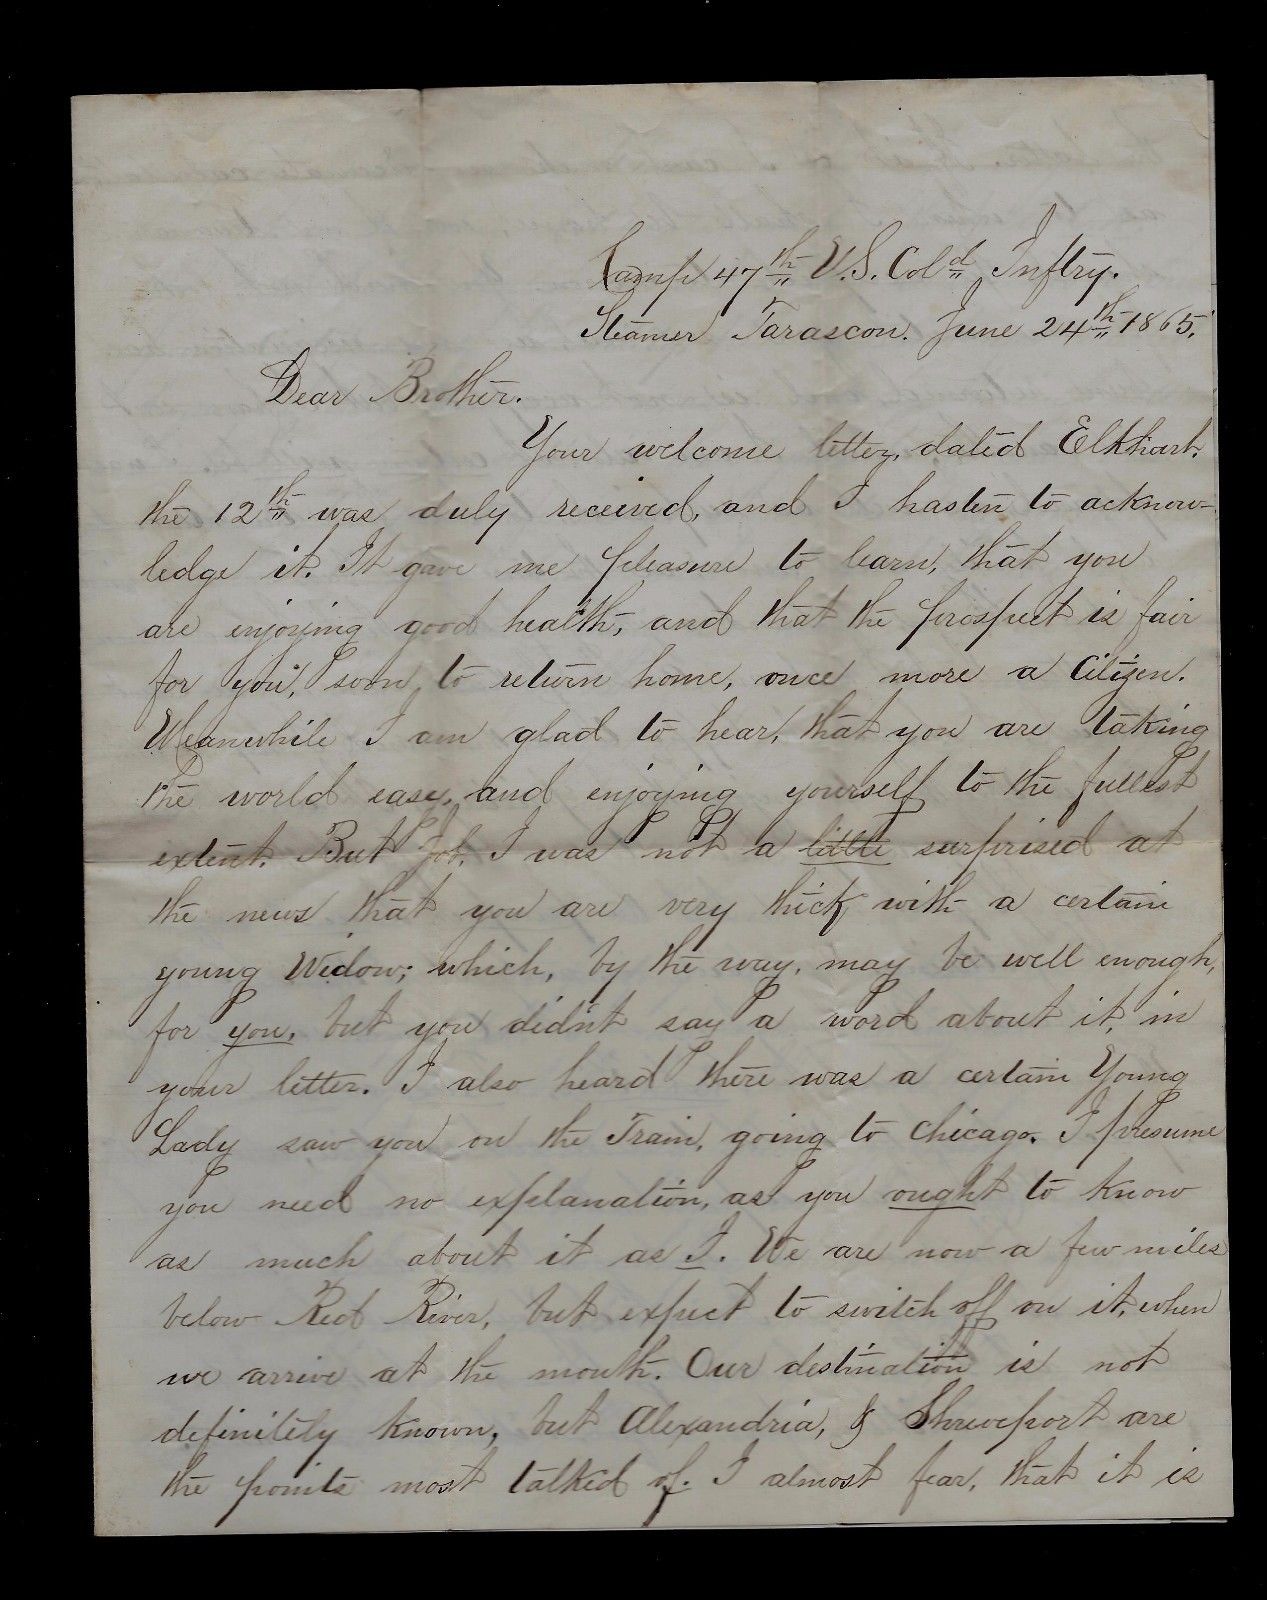 Camp 47th U.S. Cold Inftry.
Steamer Tarascon. June 24th 1865.
Dear Brother.
Your welcome letter, dated Elkhart,
the 12th was duly received, and I hasten to acknow-
ledge it. It gave me pleasure to learn, that you
are enjoying good health, and that the prospect is fair
for you, soon, to return home, once more a Citizen.
Meanwhile I am glad to hear, that you are taking
the world easy, and enjoying yourself to the fullest
extent. But Job, I was not a little surprised at
the news that you are very thick with a certain
young Widow; which, by the way, may be well enough,
for you, but you didn't say a word about it, in
your letter. I also heard there was a certain Young
Lady saw you on the Train, going to Chicago. I presume
you need no explanation, as you ought to know
as much about it as I. We are now a few miles
below Red River, but expect to switch off on it, when
we arrive at the mouth. Our destination is not
definitely known, but Alexandria, & Shreveport are
the points most talked of. I almost fear, that it is